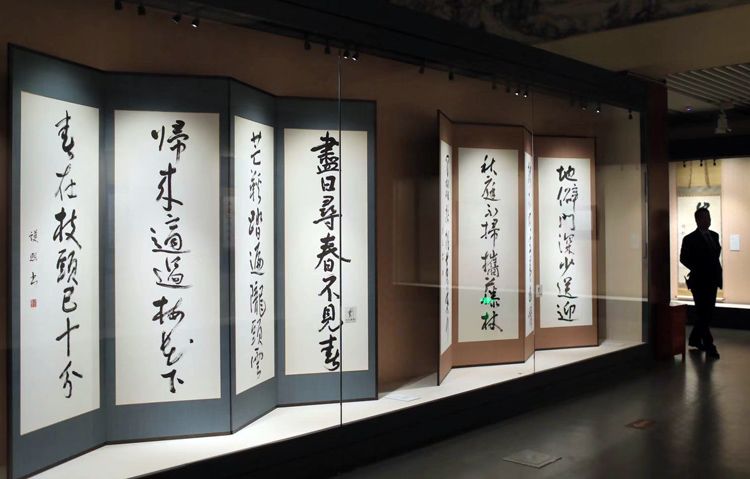 盡日尋春不見春
芒鞋踏遍隴頭雲
歸來適過梅花下
春在枝頭已十分
護熙書
地僻門深少送迎
秋庭不掃攜藤杖